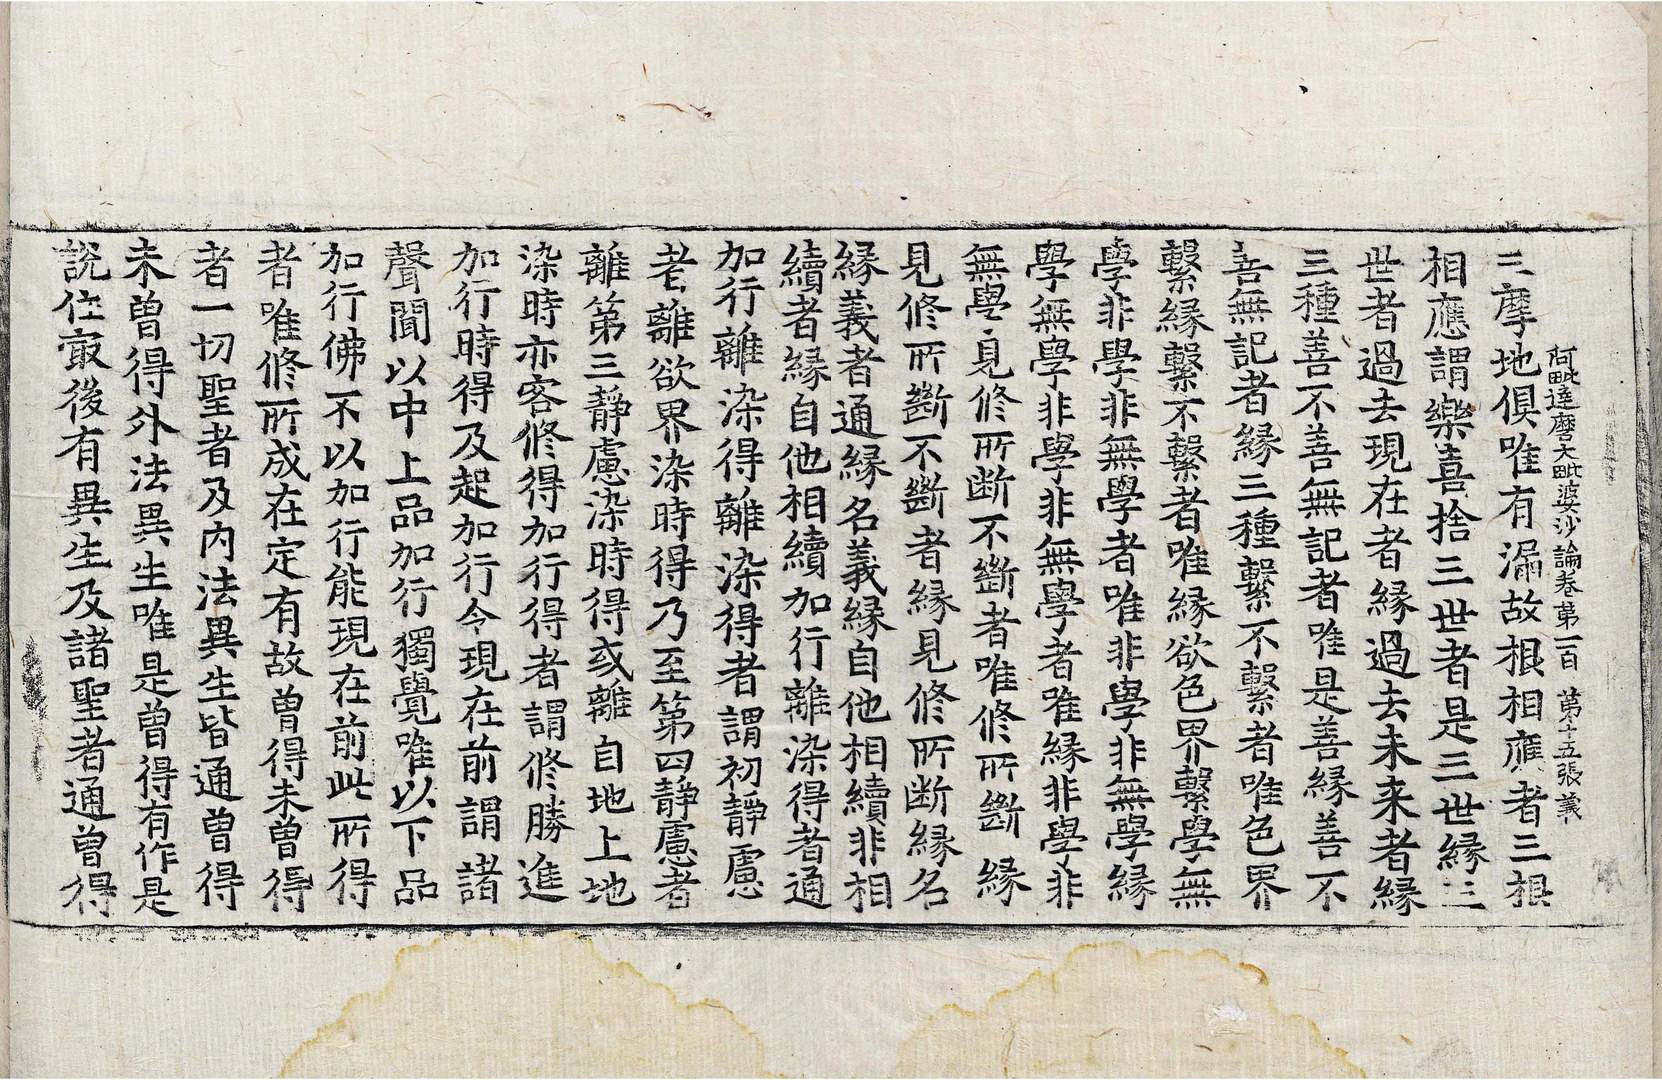 阿毗達磨大毗婆沙論卷第一百 第十五張 義
三摩地俱唯有漏故根相應者三根
相應謂樂喜捨三世者是三世緣三
世者過去現在者緣過去未来者緣
三種善不善無記者唯是善緣善不
善無記者緣三種繫不繫者唯色界
繫緣繫不繫者唯緣欲色界繫學無
學非學非無學者唯非學非無學緣
學無學非學非無學者唯緣非學非
無學見修所断不斷者唯修所斷緣
見修所斷不斷者緣見修所断緣名
緣義者通緣名義緣自他相續非相
續者緣自他相續加行離染得者通
加行離染得離染得者謂初靜慮
者離欲界染時得乃至第四靜慮者
離第三靜慮染時得或離自地上地
染時亦容修得加行得者謂修勝進
加行時得及起加行令現在前謂諸
聲聞以中上品加行獨覺唯以下品
加行佛不以加行能現在前此所得
者唯修所成在定有故曾得未曾得
者一切聖者及內法異生皆通曾得
未曾得外法異生唯是曾得有作是
說住㝡後有異生及諸聖者通曾得